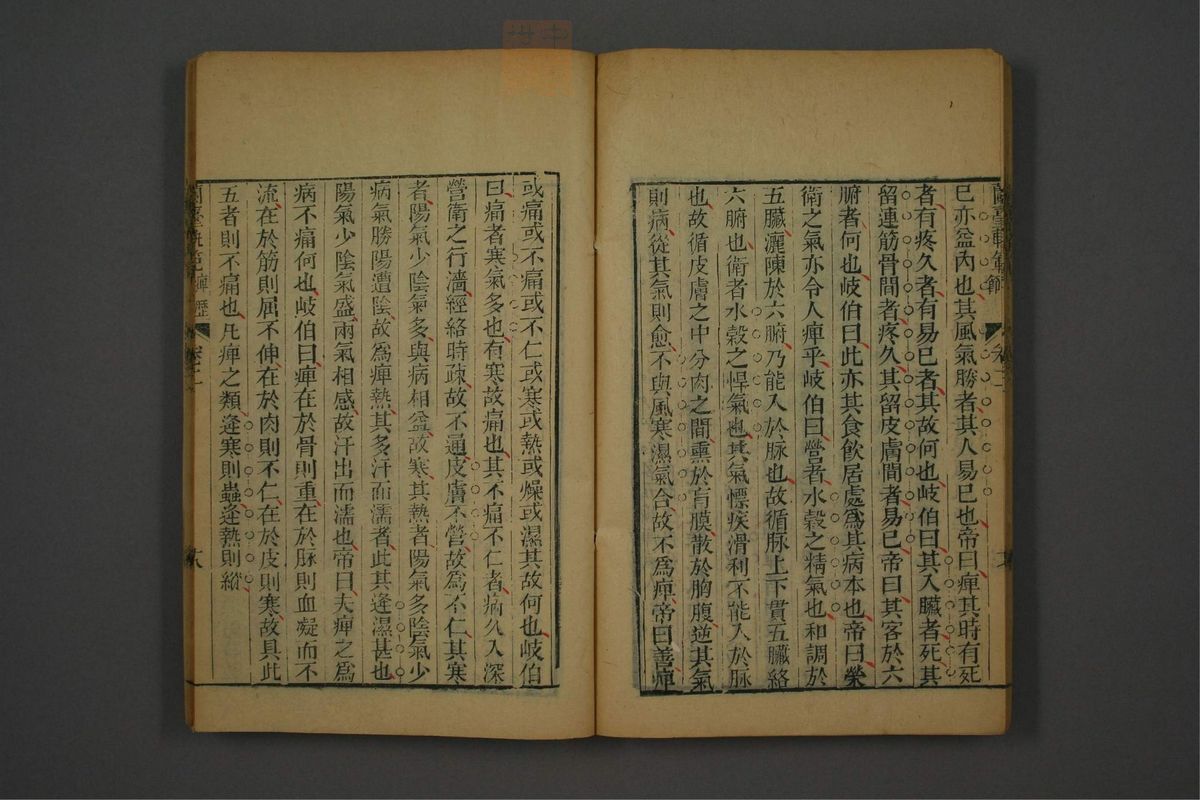 已亦益內也其風氣勝者其人易已也帝曰痺其時有死
者有疼久者有易已者其故何也岐伯曰其入臟者死其
留連筋骨間者疼久其留皮膚間者易已帝曰其客於六
腑者何也岐伯曰此亦其食飲居處爲其病本也帝曰榮
衛之氣亦令人痺乎岐伯曰營者水穀之精氣也和調於
五臟灑陳於六腑乃能入於脉也故循脉上下貫五臟絡
六腑也衛者水穀之悍氣也其氣慓疾滑利不能入於脉
也故循皮膚之中分肉之間熏於肓膜散於胸腹逆其氣
則病從其氣則愈不與風寒濕氣合故不爲痺帝曰善痺
或痛或不痛或不仁或寒或熱或燥或濕其故何也岐伯
曰痛者寒氣多也有寒故痛也其不痛不仁者病久入深
營衛之行濇經絡時疎故不通皮膚不營故爲不仁其寒
者陽氣少陰氣多與病相益故寒其熱者陽氣多陰氣少
病氣勝陽遭陰故爲痺熱其多汗而濡者此其逢濕甚也
陽氣少陰氣盛兩氣相感故汗出而濡也帝曰夫痺之爲
病不痛何也岐伯曰痺在於骨則重在於脉則血凝而不
流在於筋則屈不伸在於肉則不仁在於皮則寒故具此
五者則不痛也凡痺之類逢寒則蟲逢熱則縱